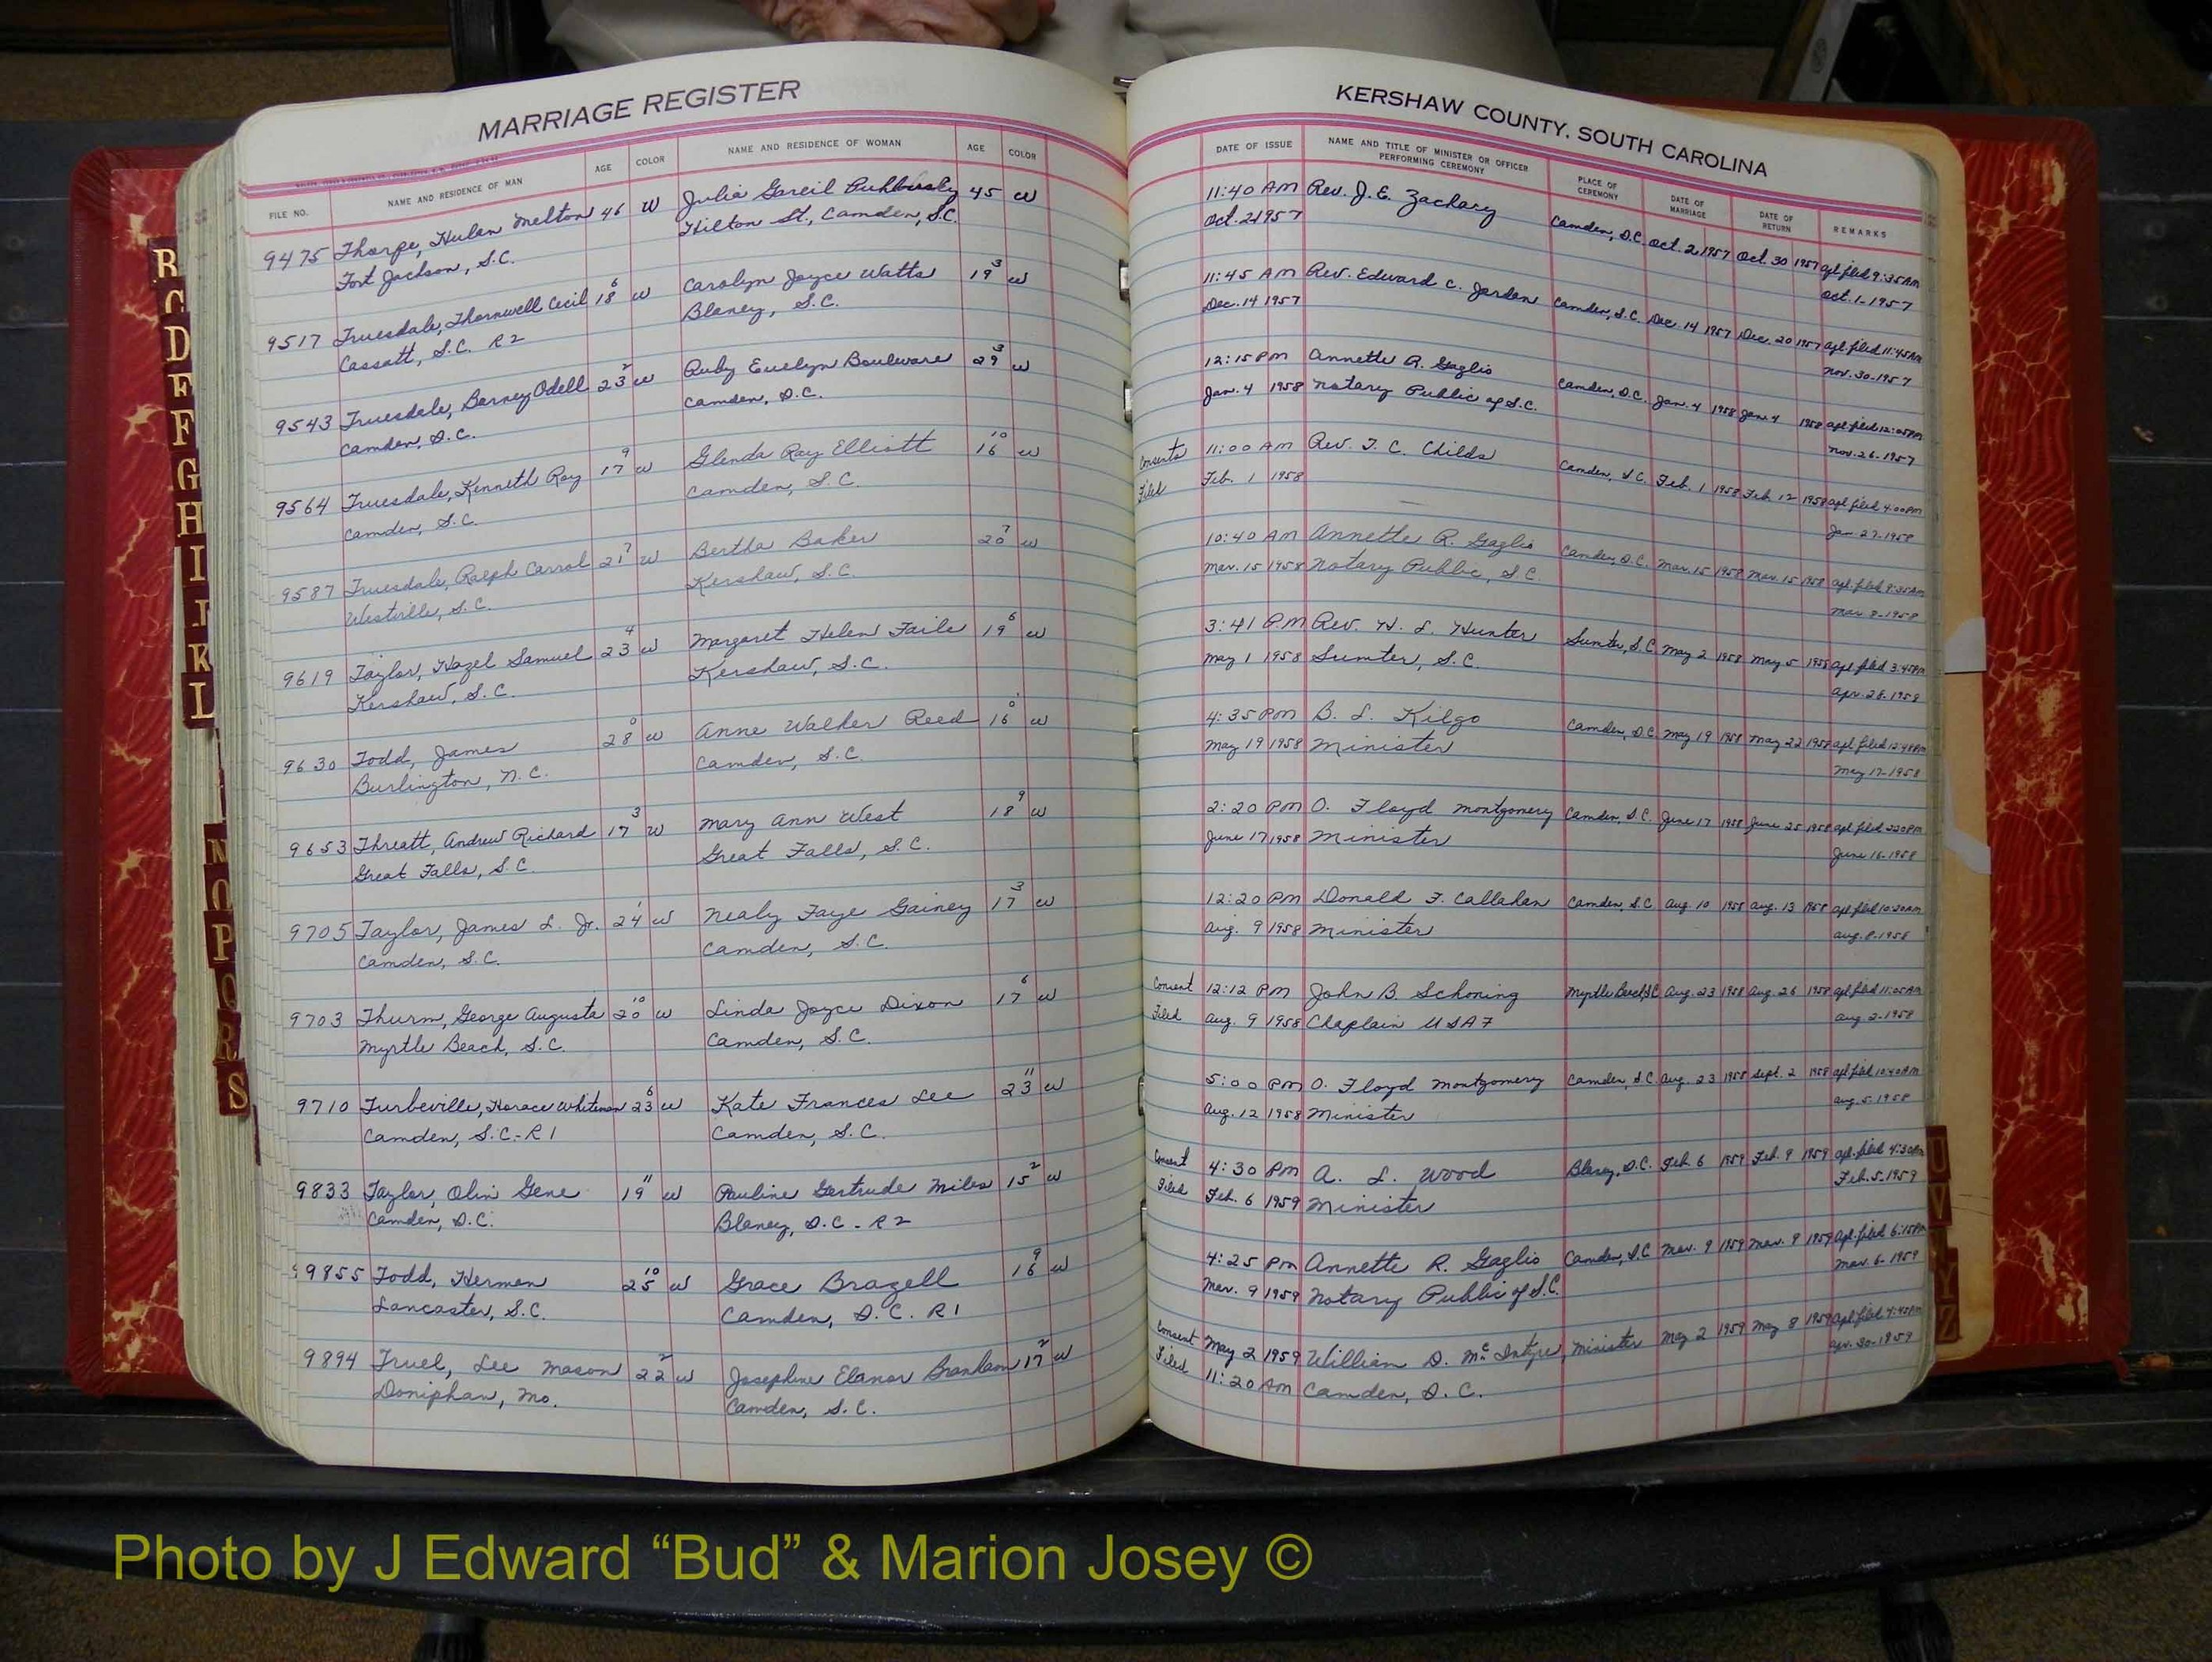 MARRIAGE REGISTER
FILE NO. NAME AND RESIDENCE OF MAN AGE COLOR NAME AND RESIDENCE OF WOMAN AGE COLOR
9475 Thorpe, Hulan Melton 46 W Julia Gareil 45 W
Fort Jackson, S.C. Hilton St., Camden, S.C.
9517 Truesdale, Thornwell Cecil 18 6 W Carolyn Joyce Watts 19 3 W
Cassatt, S.C. R2 Blaney, S.C.
9543 Truesdale, Barney Odell 23 2 W Ruby Evelyn Bouleware 29 3 W
Camden, S.C. Camden, S.C.
9564 Truesdale, Kenneth Ray 17 9 W Glenda Ray Elliott 16 10 W
Camden, S.C. Camden, S.C.
9587 Truesdale, Ralph Carrol 21 7 W Bertha Baker 20 7 W
Westville, S.C. Kershaw, S.C.
9619 Taylor, Hazel Samuel 23 4 W Margaret Helen Faile 19 6 W
Kershaw, S.C. Kershaw, S.C.
9630 Todd, James 28 0 W Anne Walker Reed 16 0 W
Burlington, N.C. Camden, S.C.
9653 Threatt, Andrew Richard 17 3 W Mary Ann West 18 9 W
Great Falls, S.C. Great Falls, S.C.
9705 Taylor, James L. Jr. 24 1 W Nealy Faye Gainey 17 3 W
Camden, S.C. Camden, S.C.
9703 Thurm, George Augusta 20 10 W Linda Joyce Dixon 17 6 W
Myrtle Beach, S.C. Camden, S.C.
9710 Turbeville, Horace Whiteman 23 6 W Kate Frances Lee 23 11 W
Camden, S.C.-R1 Camden, S.C.
9833 Taylor, Olin Gene 19 11 W Pauline Gertrude Miles 15 2 W
Camden, S.C. Blaney, S.C.-R2
9855 Todd, Herman 25 10 W Grace Brazell 16 9 W
Lancaster, S.C. Camden, S.C. R1
9894 Truel, Lee Mason 22 2 W Josephine Elanor Branham 17 2 W
Doniphan, Mo. Camden, S.C.
KERSHAW COUNTY, SOUTH CAROLINA
DATE OF ISSUE NAME AND TITLE OF MINISTER OR OFFICER PERFORMING CEREMONY PLACE OF CEREMONY DATE OF MARRIAGE DATE OF RETURN REMARKS
11:40 AM Rev. J. E. Zachary Camden, S.C. Oct. 2 1957 Oct. 30 1957 apl. filed 9:35 AM
Oct. 2 1957 Oct. 1-1957
11:45 AM Rev. Edward C. Jordan Camden, S.C. Dec. 14 1957 Dec. 20 1957 apl. filed 11:45 AM
Dec. 14 1957 Nov. 30-1957
12:15 PM Annette R. Gaglio Camden, S.C. Jan. 4 1958 Jan. 4 1958 apl. filed 12:05 PM
Jan. 4 1958 Notary Public of S.C. Nov. 26-1957
Consents 11:00 AM Rev. T. C. Childs Camden, S.C. Feb. 1 1958 Feb. 12 1958 apl. filed 4:00 PM
Filed Feb. 1 1958 Jan. 27-1958
10:40 AM Annette R. Gaglio Camden, S.C. Mar. 15 1958 Mar. 15 1958 apl. filed 9:35 AM
Mar. 15 1958 Notary Public, S.C. Mar. 8-1958
3:41 P.M Rev. H. L. Hunter Sumter, S.C. May 2 1958 May 5 1958 apl. filed 3:45 PM
May 1 1958 Sumter, S.C. Apr. 28-1958
4:35 PM B. L. Kilgo Camden, S.C. May 19 1958 May 22 1958 apl. filed 12:48 PM
May 19 1958 Minister May 17-1958
2:20 PM O. Floyd Montgomery Camden, S.C. June 17 1958 June 25 1958 apl. filed 2:20 PM
June 17 1958 Minister June 16-1958
12:20 PM Donald F. Callahan Camden, S.C. Aug. 10 1958 Aug. 13 1958 apl. filed 10:20 AM
Aug. 9 1958 Minister Aug. 8-1958
Consent 12:12 PM John B. Schoning Myrtle Beach, S.C. Aug. 23 1958 Aug. 26 1958 apl. filed 11:05 AM
Filed Aug. 9 1958 Chaplain USAF Aug. 2-1958
5:00 PM O. Floyd Montgomery Camden, S.C. Aug. 23 1958 Sept. 2 1958 apl. filed 10:40 AM
Aug. 12 1958 Minister Aug. 5-1958
Consent 4:30 PM A. L. Wood Blaney, S.C. Feb. 6 1959 Feb. 9 1959 apl. filed 4:30 PM
Filed Feb. 6 1959 Minister Feb. 5-1959
4:25 PM Annette R. Gaglio Camden, S.C Mar. 9 1959 Mar. 9 1959 apl. filed 6:15 PM
Mar. 9 1959 Notary Public of S.C. Mar. 6-1959
Consent May 2 1959 William D. McIntyre, Minister May 2 1959 May 8 1959 apl. filed 4:45 PM
Filed 11:20 AM Camden, S.C. Apr. 30-1959
D
F
G
H
I
K
L
N
O
P
Q
R
S
U
V
Y Z
Photo by J Edward “Bud” & Marion Josey ©